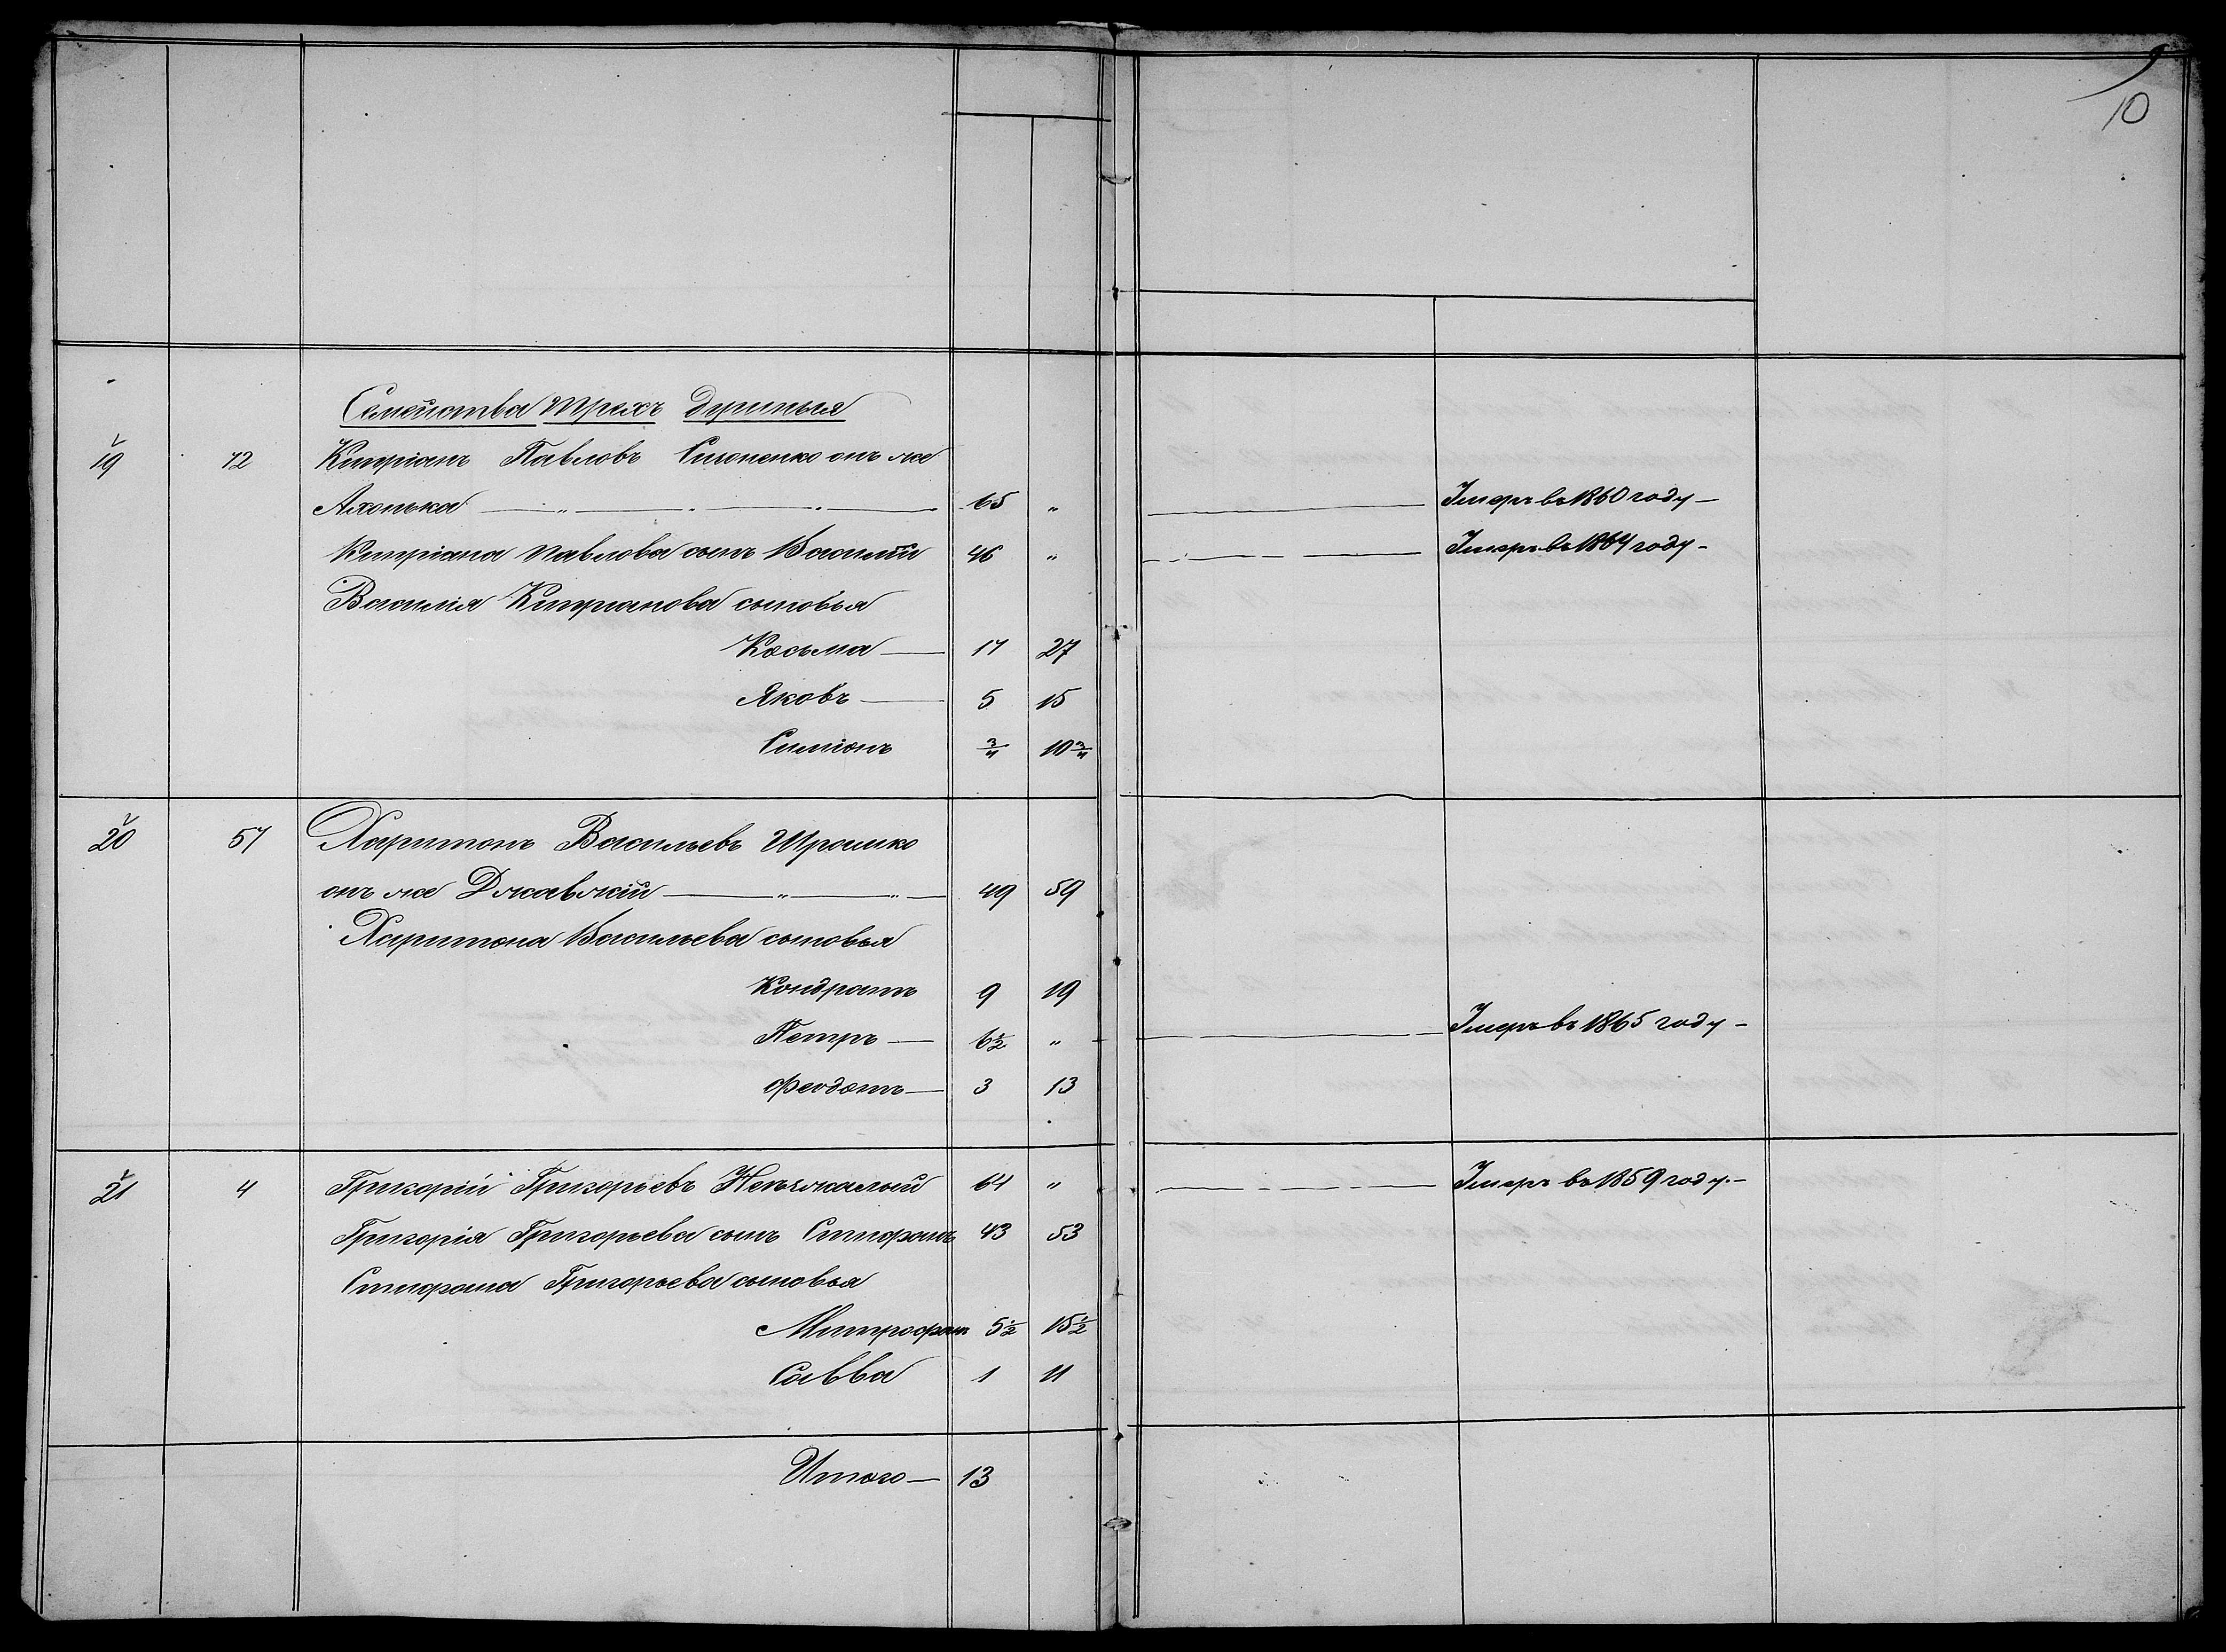 10
Семейства трехъ душныя
19 72 Кипріанъ Павловъ Симоненко онъ же
Ахонька 65 " Умеръ въ 1860 году
Кипріана Павлова сынъ Василій 46 " Умеръ въ 1864 году
Василія Кипріанова сыновья
Косьма 17 27
Яковъ 5 15
Симіонъ 3/4 10 3/4
20 57 Харитонъ Васильевъ
онъ же 49 59
Харитона Васильева сыновья
Кондратъ 9 19
Петръ 6 1/2 " Умеръ въ 1865 году
Феодотъ 3 13
21 4 Григорій Григорьевъ 64 " Умеръ въ 1859 году
Григорія Григорьева сынъ Стифанъ 43 53
Стифана Григорьева сыновья
Митрофанъ 5 1/2 15 1/2
Савва 1 11
Итого 13